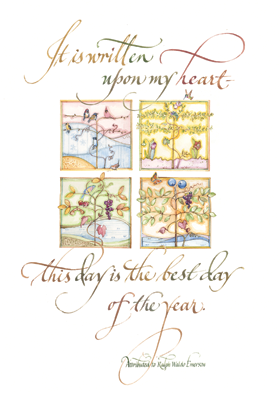 It is written
upon my heart-
this day is the best day
of the year.
Attributed to Ralph Waldo Emerson